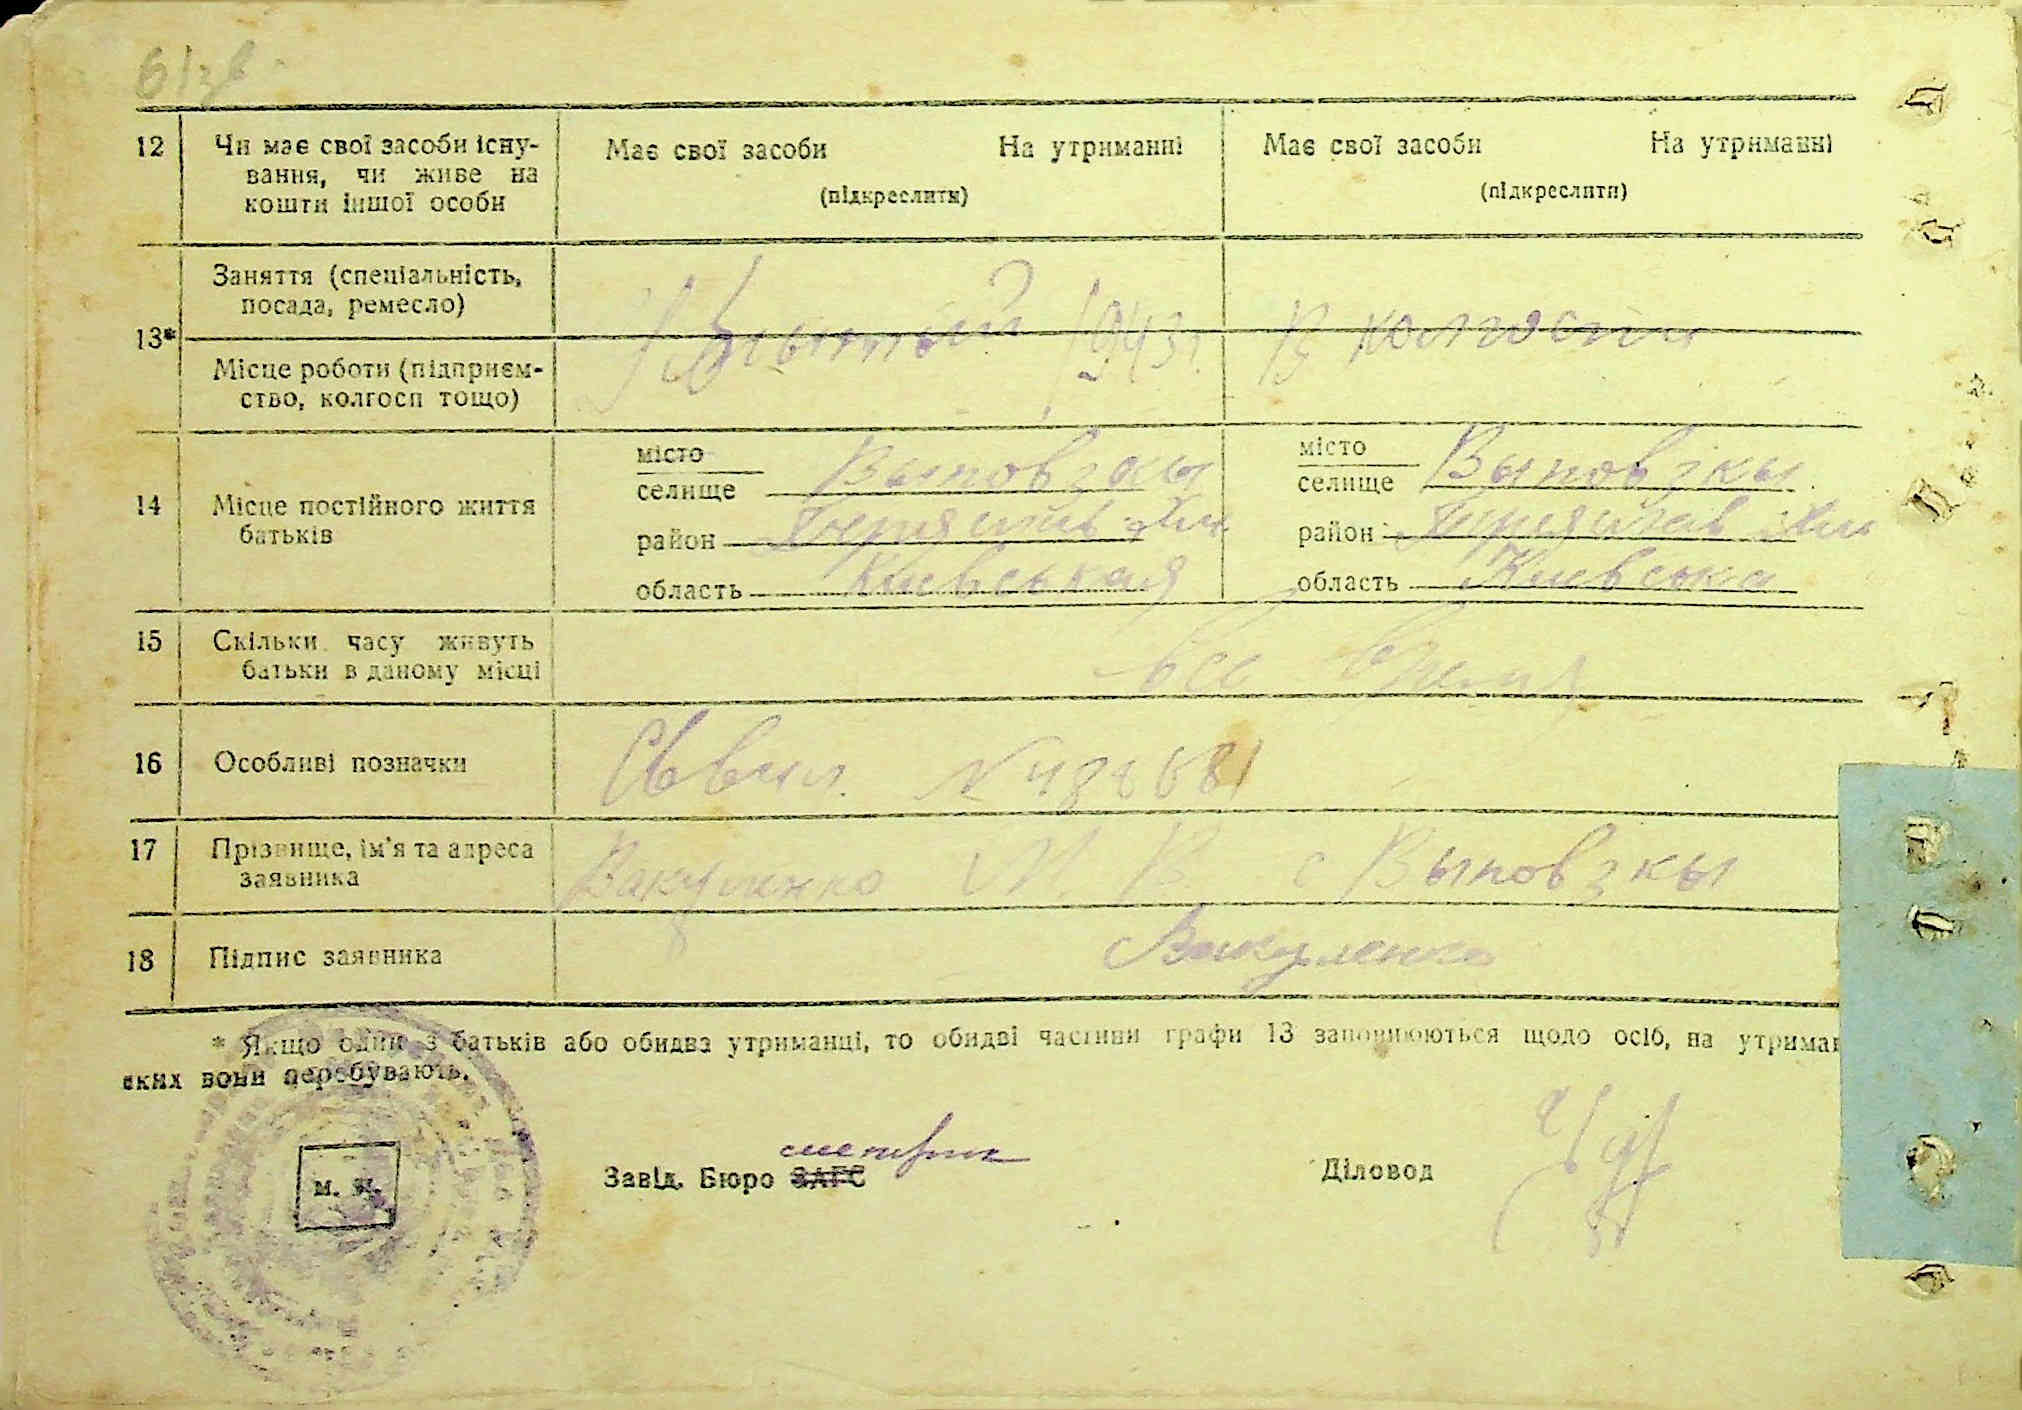 61зв
12 Чи має свої засоби існу- Має свої засоби На утриманні Має свої засоби На утриманні
вання, чи живе на (підкреслити) (підкреслити)
кошти іншої особи
Заняття (спеціальність,
посада, ремесло)
13* Убитый 1943 г. В колгоспи
Місце роботи (підприєм-
ство, колгосп тощо)
14 Місце постійного життя батьків
місто селище Выповзкы місто селище Выповзкы
район район
область Киевськая область Киевська
15 Скільки часу живуть Все время
батьки в даному місці
16 Особливі позначки №
17 Прізвище, ім'я та адреса Вакуленко М. В. с Выповзкы
заявника
18 Підпис заявника Вакуленко
* Якщо один з батьків або обидва утриманці, то обидві частини графи 13 заповнюються щодо осіб, на утриман
яких вони перебувають.
М. П. Завід. Бюро ЗАГС Діловод